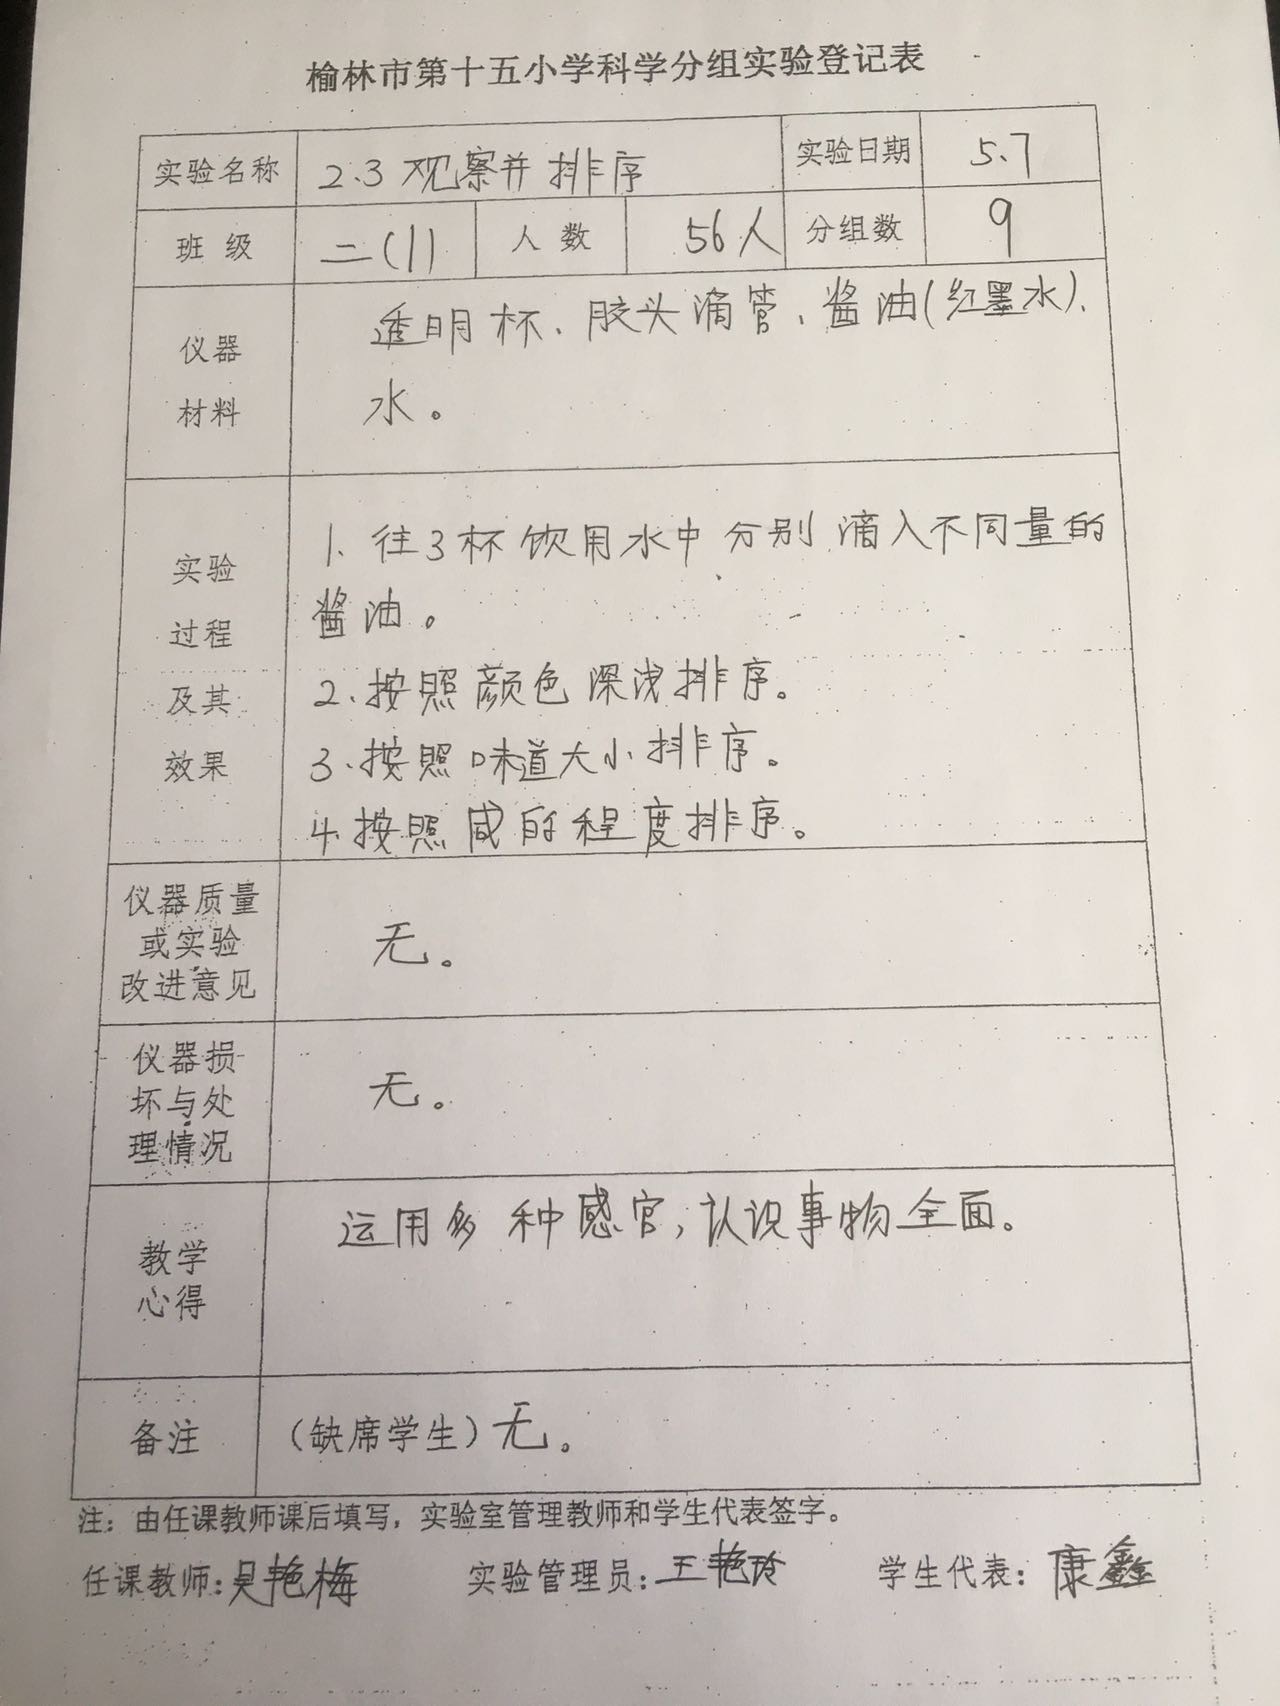 榆林市第十五小学科学分组实验登记表
实验名称 2.3 观察并排序 实验日期 5.7
班级 二(1) 人数 56人 分组数 9
仪器材料
透明杯、胶头滴管、酱油(红墨水)、
水。
实验过程及其效果
1. 往3杯饮用水中分别滴入不同量的
酱油。
2.按照颜色深浅排序。
3.按照味道大小排序。
4.按照咸的程度排序。
仪器质量或实验改进意见
无。
仪器损坏与处理情况
无。
教学心得
运用多种感官,认识事物全面。
备注 (缺席学生)无。
注：由任课教师课后填写，实验室管理教师和学生代表签字。
任课教师:吴艳梅 实验管理员:王艳玲 学生代表:康鑫